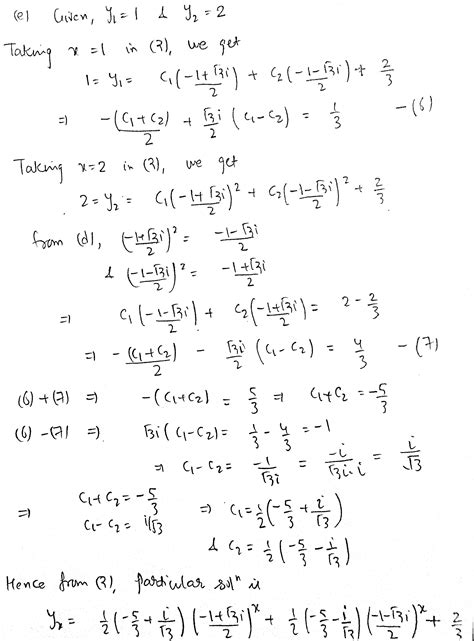 (e) Given, y₁ = 1 & y₂ = 2
Taking x = 1 in (3), we get
1 = y₁ = c₁(-1+√3i / 2) + c₂(-1-√3i / 2) + 2/3
⇒ -(c₁+c₂)/2 + √3i/2 (c₁-c₂) = 1/3 — (6)
Taking x=2 in (3), we get
2 = y₂ = c₁(-1+√3i / 2)² + c₂(-1-√3i / 2)² + 2/3
from (d), (-1+√3i / 2)² = -1-√3i / 2
& (-1-√3i / 2)² = -1+√3i / 2
⇒ c₁(-1-√3i / 2) + c₂(-1+√3i / 2) = 2 - 2/3
⇒ -(c₁+c₂)/2 - √3i/2 (c₁-c₂) = 4/3 — (7)
(6)+(7) ⇒ -(c₁+c₂) = 5/3 ⇒ c₁+c₂ = -5/3
(6)-(7) ⇒ √3i(c₁-c₂) = 1/3 - 4/3 = -1
⇒ c₁-c₂ = -1/√3i = -i/√3i·i = i/√3
⇒ c₁+c₂ = -5/3 ⇒ c₁ = 1/2(-5/3 + i/√3)
c₁-c₂ = i/√3
& c₂ = 1/2(-5/3 - i/√3)
Hence from (3), particular solⁿ is
yₓ = 1/2(-5/3 + i/√3)(-1+√3i / 2)ˣ + 1/2(-5/3 - i/√3)(-1-√3i / 2)ˣ + 2/3